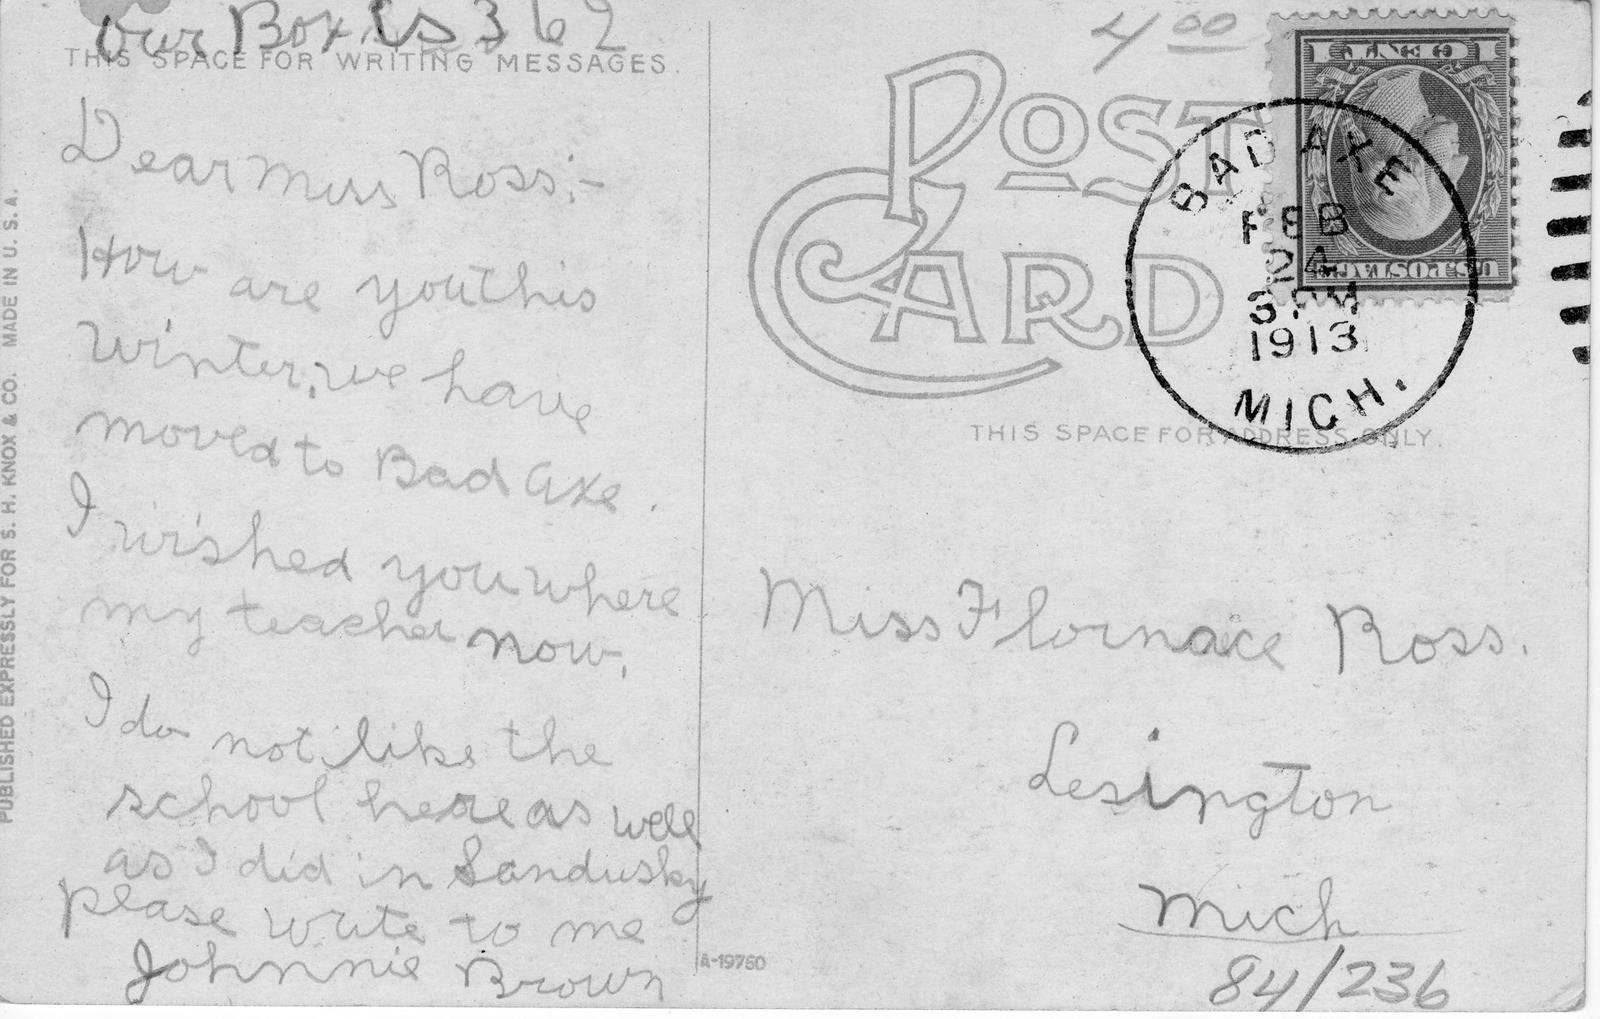 our Box is 362
THIS SPACE FOR WRITING MESSAGES.
Dear Miss Ross;-
How are you this
winter, we have
moved to Bad Axe.
I wished you where
my teacher now,
I do not like the
school here as well
as I did in Sandusky
please write to me
Johnnie Brown
PUBLISHED EXPRESSLY FOR S. H. KNOX & CO. MADE IN U. S. A.
A-19750
4 00
POST
CARD
1 CENT 1
U.S. POSTAGE
BAD AXE
FEB
24
3 PM
1913
MICH.
THIS SPACE FOR ADDRESS ONLY.
Miss Flornace Ross.
Lesington
Mich
84/236